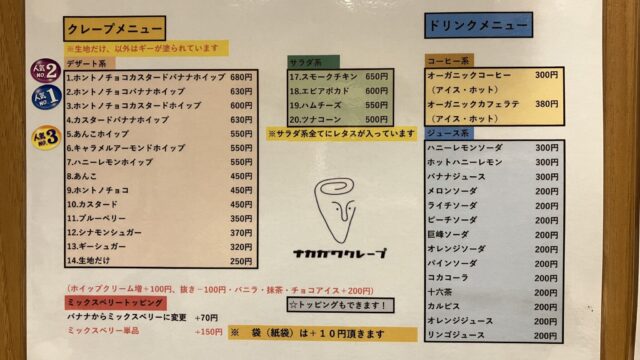 クレープメニュー
※生地だけ、以外はギーが塗られています
デザート系
人気NO.2
1.ホントノチョコカスタードバナナホイップ 680円
人気NO.1
2.ホントノチョコバナナホイップ 630円
3.ホントノチョコカスタードホイップ 600円
人気NO.3
4.カスタードバナナホイップ 630円
5.あんこホイップ 550円
6.キャラメルアーモンドホイップ 550円
7.ハニーレモンホイップ 550円
8.あんこ 450円
9.ホントノチョコ 450円
10.カスタード 450円
11.ブルーベリー 350円
12.シナモンシュガー 370円
13.ギーシュガー 320円
14.生地だけ 250円
(ホイップクリーム増+100円、抜き−100円・バニラ・抹茶・チョコアイス+200円)
ミックスベリートッピング
バナナからミックスベリーに変更 +70円
ミックスベリー単品 +150円
サラダ系
17.スモークチキン 650円
18.エビアボカド 600円
19.ハムチーズ 550円
20.ツナコーン 500円
※サラダ系全てにレタスが入っています
ナカガワクレープ
☆トッピングもできます!
※ 袋(紙袋)は+10円頂きます
ドリンクメニュー
コーヒー系
オーガニックコーヒー 300円
(アイス・ホット)
オーガニックカフェラテ 380円
(アイス・ホット)
ジュース系
ハニーレモンソーダ 300円
ホットハニーレモン 300円
バナナジュース 300円
メロンソーダ 200円
ライチソーダ 200円
ピーチソーダ 200円
巨峰ソーダ 200円
オレンジソーダ 200円
パインソーダ 200円
コカコーラ 200円
十六茶 200円
カルピス 200円
オレンジジュース 200円
リンゴジュース 200円